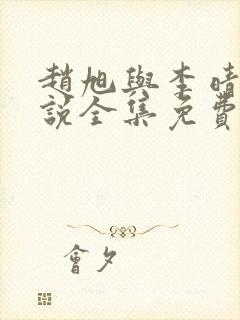 趙旭與李晴
說全集免費
會夕